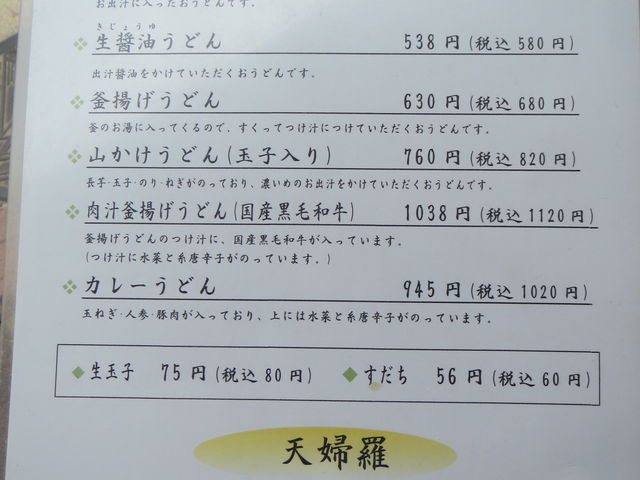 お出汁に入ったおうどんです。
きじょうゆ
生醤油うどん 538円(税込580円)
出汁醤油をかけていただくおうどんです。
釜揚げうどん 630円(税込680円)
釜のお湯に入ってくるので、すくってつけ汁につけていただくおうどんです。
山かけうどん(玉子入り) 760円(税込820円)
長芋・玉子・のり・ねぎがのっており、濃いめのお出汁をかけていただくおうどんです。
肉汁釜揚げうどん(国産黒毛和牛) 1038円(税込1120円)
釜揚げうどんのつけ汁に、国産黒毛和牛が入っています。
(つけ汁に水菜と糸唐辛子がのっています。)
カレーうどん 945円(税込1020円)
玉ねぎ・人参・豚肉が入っており、上には水菜と糸唐辛子がのっています。
生玉子 75円(税込80円) すだち 56円(税込60円)
天婦羅